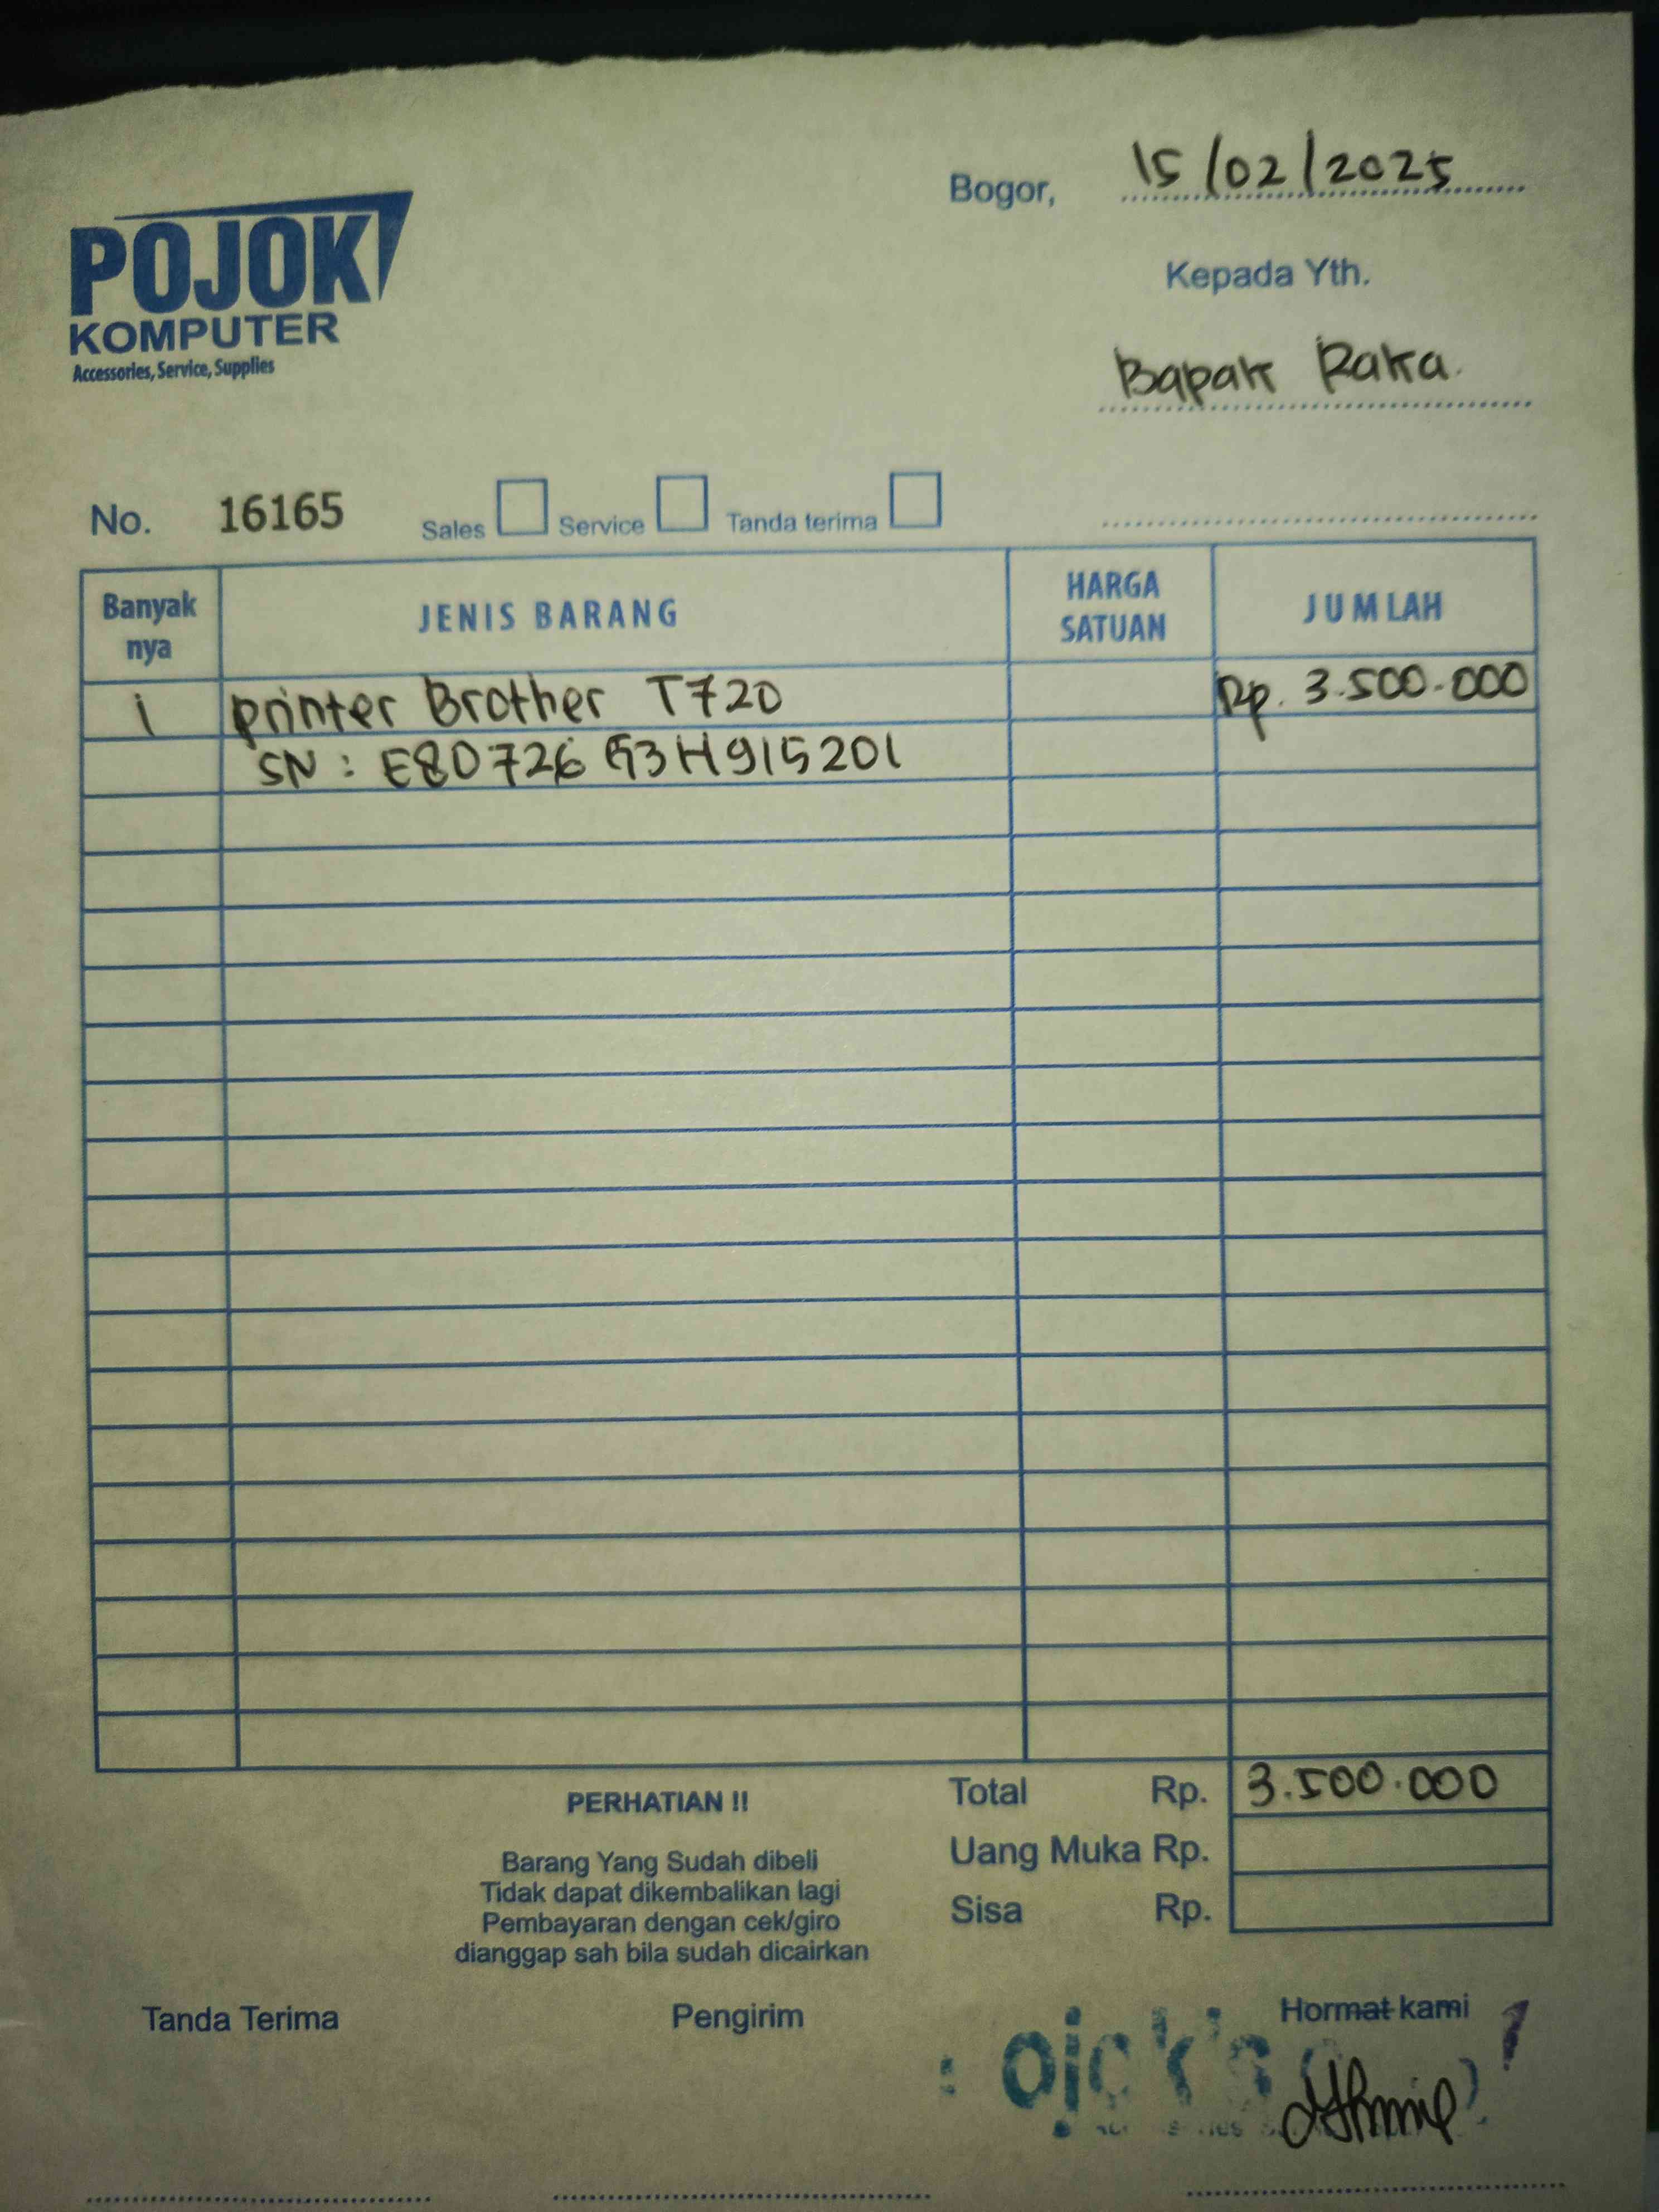 Bogor, 15/02/2025
POJOK
KOMPUTER
Accessories, Service, Supplies
Kepada Yth.
Bapak Raka
No. 16165 Sales Service Tanda terima
Banyak nya JENIS BARANG HARGA SATUAN JUMLAH
1 printer Brother T720 Rp. 3.500.000
SN : E80726G3H915201
PERHATIAN !!
Barang Yang Sudah dibeli
Tidak dapat dikembalikan lagi
Pembayaran dengan cek/giro
dianggap sah bila sudah dicairkan
Total Rp. 3.500.000
Uang Muka Rp.
Sisa Rp.
Tanda Terima Pengirim Hormat kami